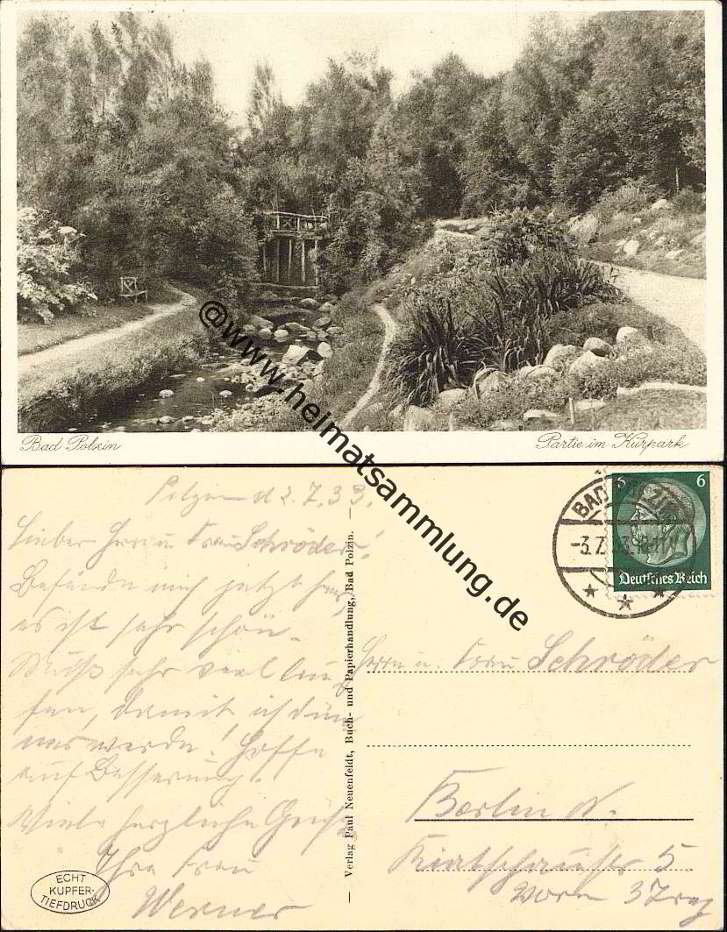 Bad Polzin
Partie im Kurpark
@www.heimatsammlung.de
Polzin d 2.7.33.
Lieber Herr u Frau Schröder!
Befinde mich jetzt hier,
es ist sehr schön.
Muß sehr viel lau
fen, damit ich dün
ner werde! Hoffe
auf Besserung.
Viele herzliche Grüße
Ihre Frau
Werner
ECHT
KUPFER-
TIEFDRUCK
— Verlag Paul Neuenfeldt, Buch- und Papierhandlung, Bad Polzin. —
BAD
-3.7.33
6 6
Deutsches Reich
Herrn u. Frau Schröder
Berlin N.
5
vorn 3 Trep